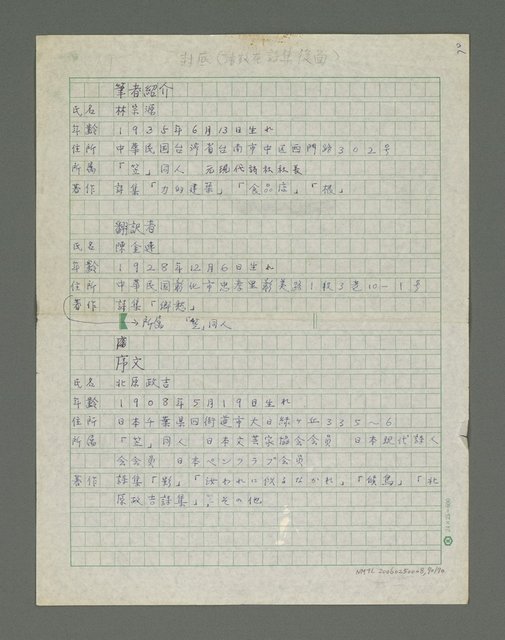 70
封底(請放在詩集後面)
筆者紹介
氏名 林宗源
年齢 1935年6月13日生れ
住所 中華民国台湾省台南市中区西門路302号
所属 「笠」同人 元現代詩社社長
著作 詩集「力的建築」「食品店」「根」
翻訳者
氏名 陳金連
年齢 1928年12月6日生れ
住所 中華民国彰化市忠孝里彰美路1段3巷10-1号
著作 詩集「郷愁」
→所属 「笠」同人
序文
氏名 北原政吉
年齢 1908年5月19日生れ
住所 日本千葉県四街道市大日緑ヶ丘335~6
所属 「笠」同人 日本文芸家協会会員 日本現代詩人
会会員 日本ペンクラブ会員
著作 詩集「影」「汝われに似るなかれ」「候鳥」「北
原政吉詩集」,その他
NMTL 20060250008,70/70